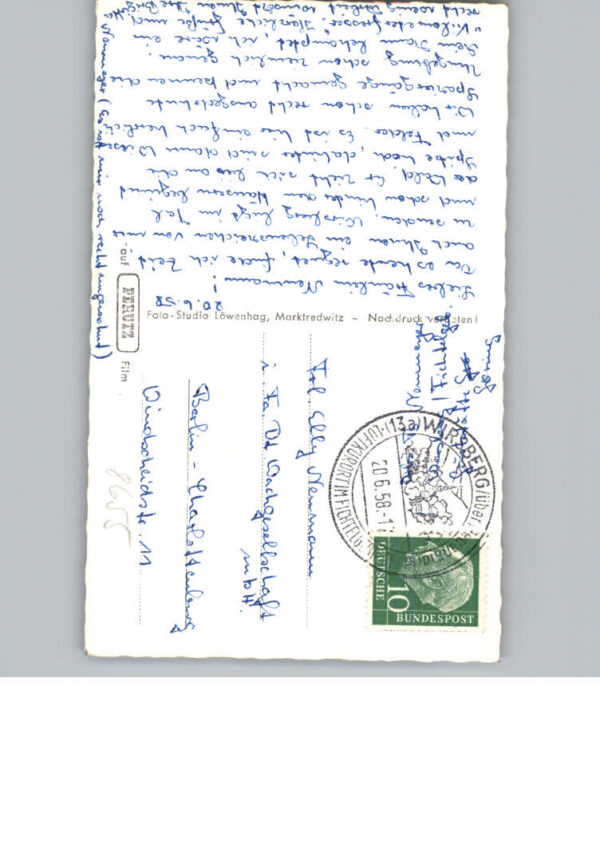 20.6.58
Liebes Fräulein Neumann!
Da es heute regnet, finde ich Zeit
auch Ihnen ein Lebenszeichen von mir
zu senden. Wirsberg liegt im Tal
und schon hinter den Häusern beginnt
der Wald. Er zieht sich bis an die
Spitze hoch, dahinter sind dann Wiesen
und Felder. Es ist hier einfach herrlich.
Wir haben schon recht ausgedehnte
Spaziergänge gemacht und kennen die
Umgebung schon ziemlich genau.
Mein Mann behauptet, ich wäre ein
"Kilometerfresser". Herzliche Grüße und
recht wenig Arbeit wünscht Ihnen Ihre
(Es ist mir noch recht ungewohnt)
Foto-Studio Löwenhag, Marktredwitz – Nachdruck verboten!
auf PERUTZ Film
Frl. Elly Neumann
i. Fa De Wachgesellschaft
mbH
Berlin-Charlottenburg
Windscheidstr. 11
8655
(13a) WIRSBERG
LUFTKURORT IM FICHTELG
20.6.58
10
DEUTSCHE
BUNDESPOST